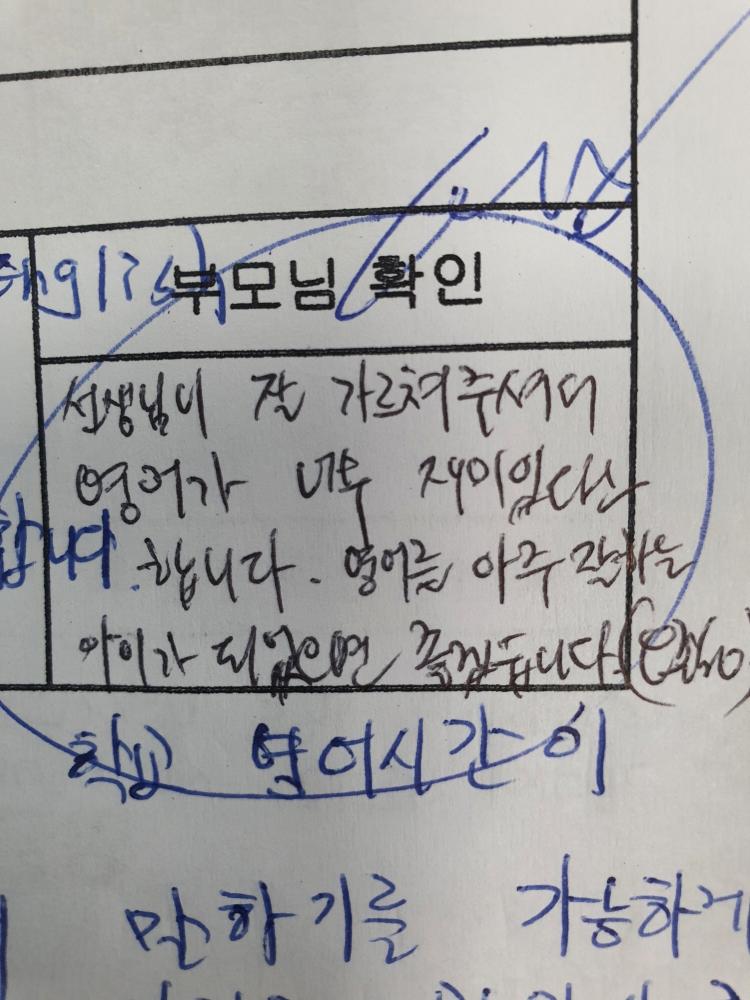 부모님 확인
선생님이 잘 가르쳐주셔서
영어가 너무 재미있다고
합니다. 영어를 아주 잘하는
합니다.
아이가 되었으면 좋겠습니다.
학교 영어시간이
말하기를 가능하게